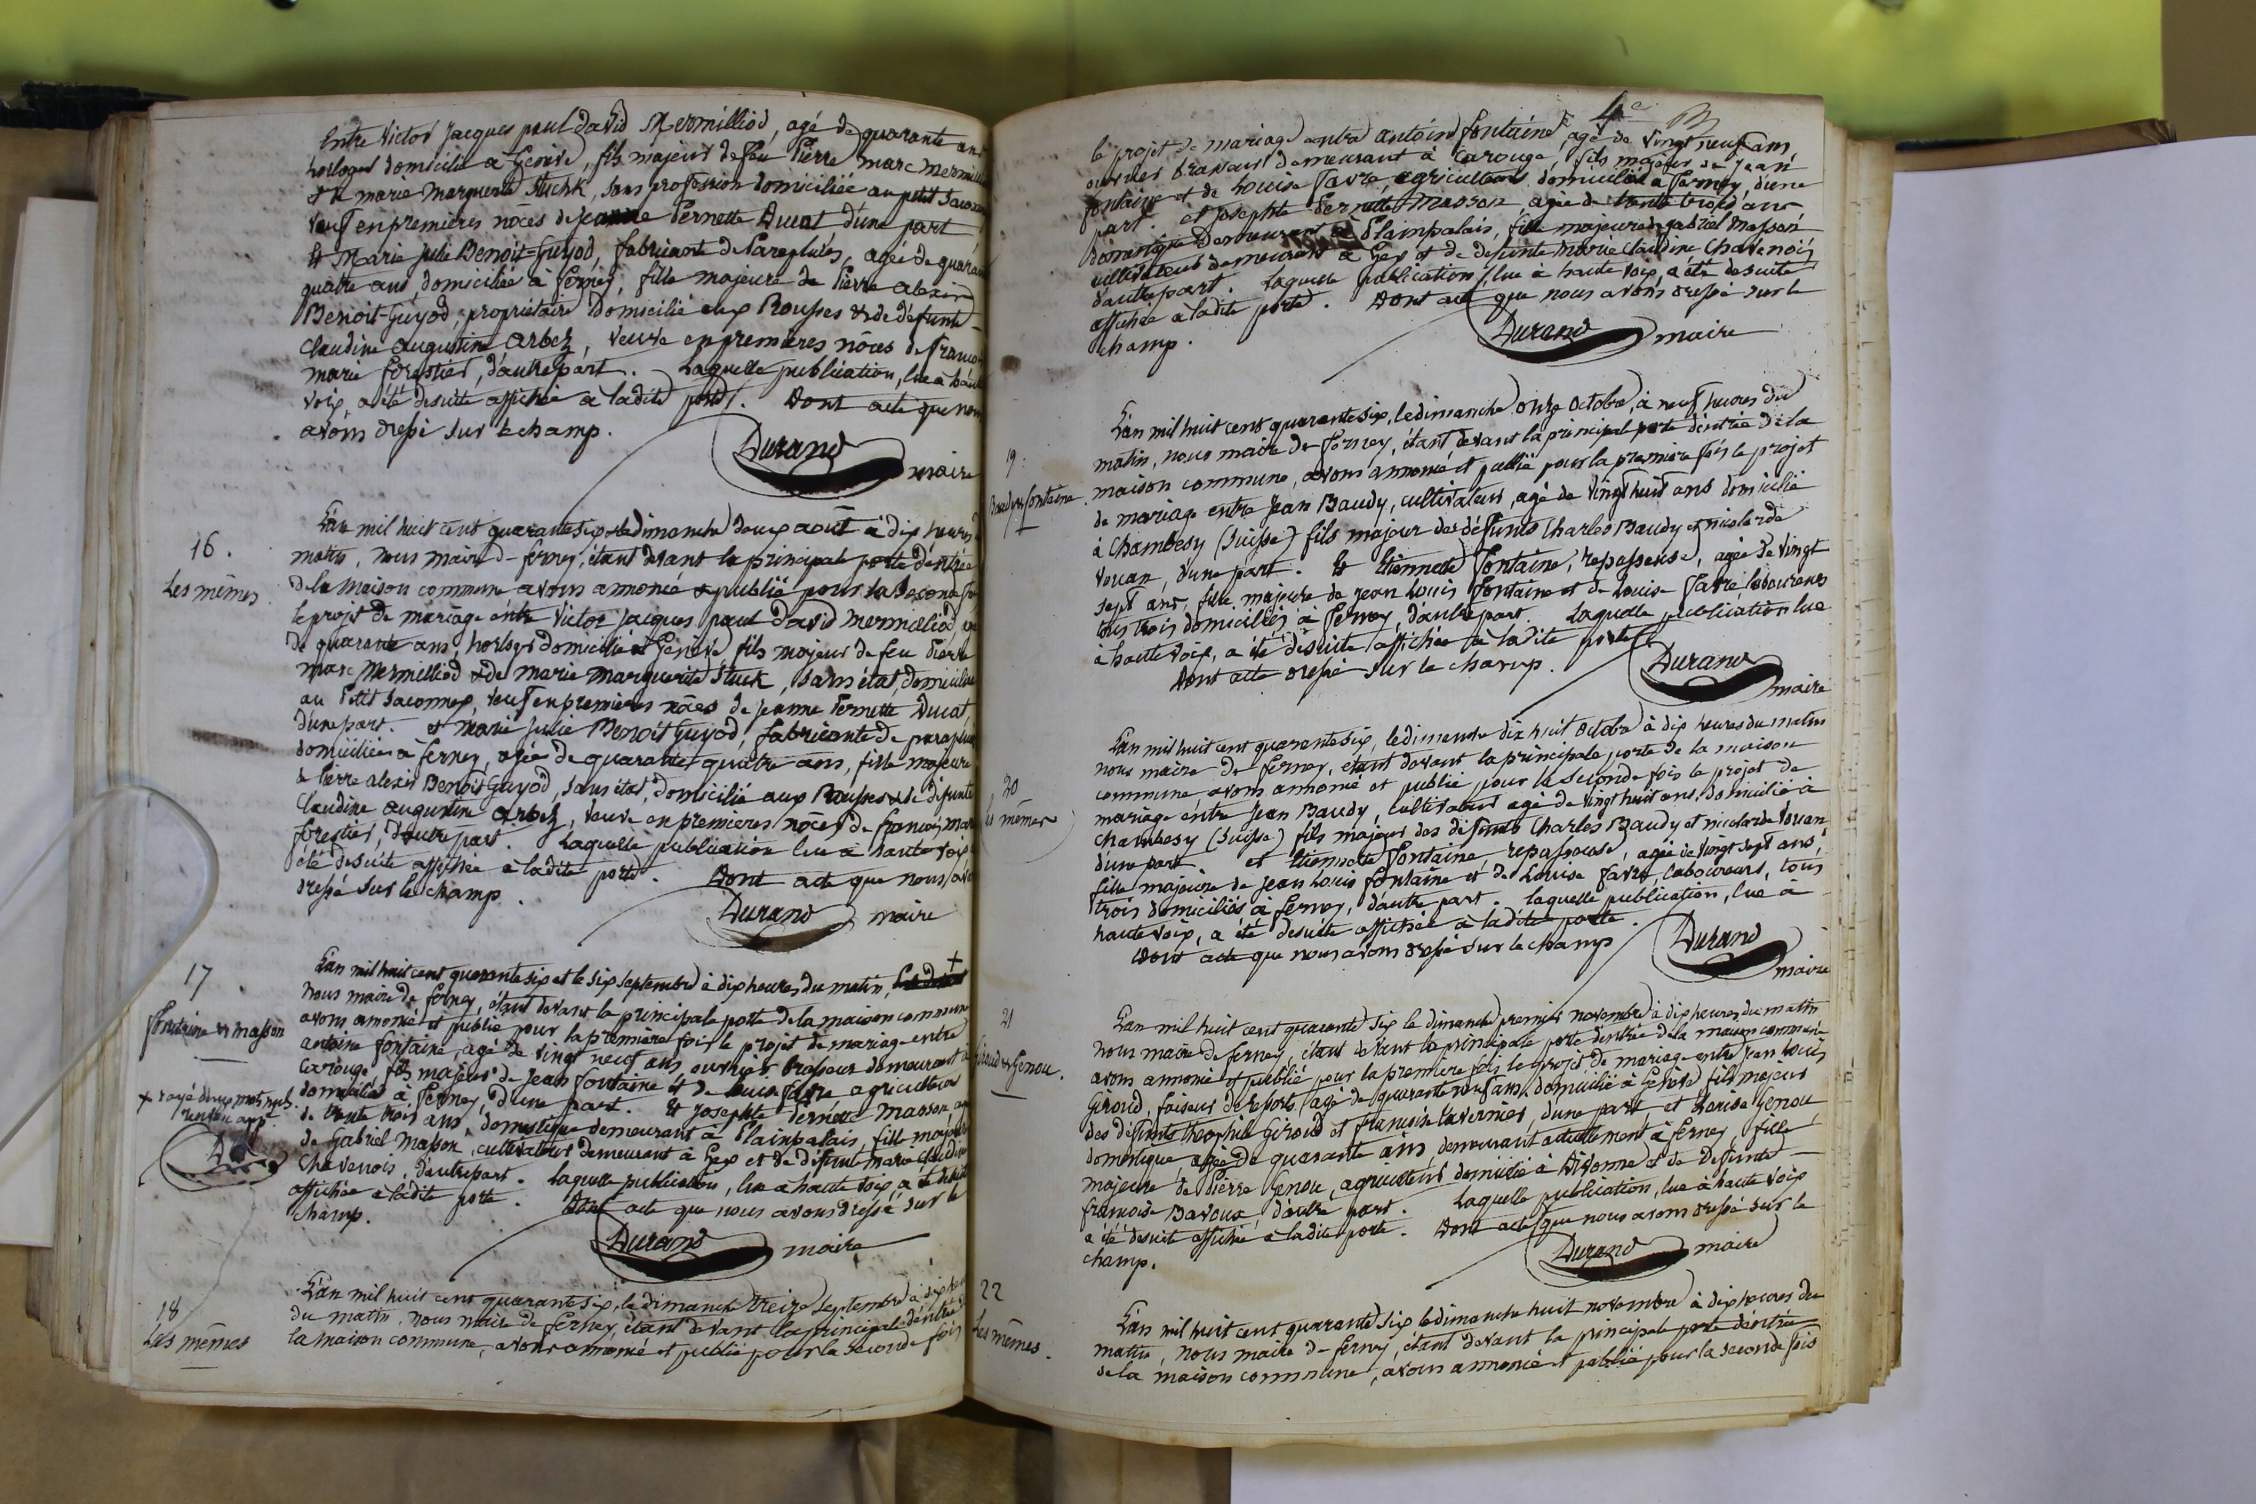 Entre Victor Jacques paul david Mermilliod, agé de quarante ans
horloger domicilié a Genève, fils majeur de feu Pierre marc Mermill
et de marie marguerite Stuck, sans profession domiciliée au petit Sacon
veuf en premieres nôces de jeanne Pernette Ducat d'une part
Et Marie julie Benoit-Guyod, fabricante de Parapluies, agée de quaran
quatre ans domiciliée à ferney, fille majeure de Pierre alexis
Benoit-Guyod, propriétaire domicilié aux Rousses & de défunte
Claudine augustine arbez, veuve en premieres nôces de franco
marie forestier, d'autre part. Laquelle publication, lue à haut
voix, a été desuite affichée à ladite porte. Dont acte que nou
avons dressé sur le champ.
Durand maire
16.
Les mêmes.
L'an mil huit cent quarante six & le dimanche deux août à dix heures
matin, nous maire de ferney, étant devant la principale porte d'entrée
de la maison commune avons annoncé & publié pour la Seconde
le projet de mariage entre Victor jacques paul david Mermilliod,
de quarante ans, horloger domicilié à Genève fils majeur de feu Pierre
marc Mermilliod & de marie marguerite Stuck, sans état, domicilié
au Petit Saconnex, veuf en premieres nôces de jeanne Pernette Ducat
d'une part. et marie julie Benoit Guyod, fabricante de paraplu
domiciliée à ferney, agée de quarante quatre ans, fille majeure
de Pierre alexis Benoit Guyod, sans état, domicilié aux Rousses & de défunte
Claudine augustine arbez, veuve en premieres nôces de françois mar
forestier, d'autre part. Laquelle publication lue à haute voix
été desuite affichée à ladite porte. Dont acte que nous av
dressé sur le champ.
Durand maire
17.
fontaine & masson
L'an mil huit cent quarante six et le six septembre à dix heures du matin, +
nous maire de ferney, étant devant la principale porte de la maison commune
avons annoncé et publié pour la premiere fois le projet de mariage entre
antoine fontaine, agé de vingt neuf ans ouvrier brasseur demeurant à
Carouge fils majeur de Jean fontaine et de Louise favre agriculteurs
domiciliés à ferney, d'une part. Et josephte Pernette Masson, ag
de trente trois ans, domestique demeurant à Plainpalais, fille majeure
de Gabriel Masson, cultivateur demeurant à Gex et de défunte marie Claudine
Chavenois, d'autre part. Laquelle publication, lue à haute voix, a été
affichée à ladite porte. Dont acte que nous avons dressé sur le
champ.
+ rayé deux mots nuls
Durand maire
18
Les mêmes
L'an mil huit cent quarante six, le dimanche treize septembre à dix
du matin, nous maire de ferney, étant devant la principale d'entrée
la maison commune, avons annoncé et publié pour la seconde fois
4e
le projet de mariage entre antoine fontaine, agé de vingt neuf ans,
ouvrier brasseur demeurant à Carouge, fils majeur de Jean
fontaine et de Louise favre, agriculteurs domiciliés à ferney, d'une
part. et josephte Pernette Masson agée de trente trois ans
domestique demeurant à Plainpalais, fille majeure de gabriel Masson
cultivateur demeurant à Gex et de défunte marie Claudine Chavenois
d'autre part. Laquelle publication, lue à haute voix, a été desuite
affichée à ladite porte. Dont acte que nous avons dressé sur le
champ.
Durand maire
19.
Baudy & fontaine.
L'an mil huit cent quarante six, le dimanche onze octobre, à neuf heures du
matin, nous maire de ferney, étant devant la principale porte d'entrée de la
maison commune, avons annoncé et publié pour la premiere fois le projet
de mariage entre Jean Baudy, cultivateur, agé de vingt huit ans domicilié
à Chambesy (Suisse) fils majeur des défunts Charles Baudy et nicolarde
Vouan, d'une part. Et Etiennette fontaine, repasseuse, agée de vingt
sept ans, fille majeure de jean Louis fontaine et de Louise favre, laboureurs
tous trois domiciliés à ferney, d'autre part. Laquelle publication lue
à haute voix, a été desuite affichée à ladite porte.
Dont acte dressé sur le champ.
Durand
maire
20
Les mêmes
L'an mil huit cent quarante six, le dimanche dix huit octobre à dix heures du matin
nous maire de ferney, étant devant la principale porte de la maison
commune avons annoncé et publié pour la seconde fois le projet de
mariage entre Jean Baudy, cultivateur agé de vingt huit ans, domicilié à
Chambesy (Suisse) fils majeur des défunts Charles Baudy et nicolarde Vouan
d'une part et Etiennette fontaine, repasseuse, agée de vingt sept ans,
fille majeure de jean Louis fontaine et de Louise favre, laboureurs, tous
trois domiciliés à ferney, d'autre part. Laquelle publication, lue à
haute voix, a été desuite affichée à ladite porte.
Dont acte que nous avons dressé sur le champ
Durand
maire
21
Giroud & Genou.
L'an mil huit cent quarante six le dimanche premier novembre à dix heures du matin
nous maire de ferney, étant devant la principale porte d'entrée de la maison commune
avons annoncé et publié pour la premiere fois le projet de mariage entre Jean Louis
Giroud, faiseur de ressorts, agé de quarante neuf ans, domicilié à Genève fils majeur
des défunts théophile Giroud et françoise tavernier, d'une part et Louise Genou
domestique, agée de quarante ans, demeurant actuellement à ferney, fille
majeure de Pierre Genou, agriculteur domicilié à Divonne et de Defunte
françoise Bavoux d'autre part. Laquelle publication, lue à haute voix
a été desuite affichée à ladite porte. Dont acte que nous avons dressé sur le
champ.
Durand maire
22
Les mêmes.
L'an mil huit cent quarante six le dimanche huit novembre à dix heures du
matin, nous maire de ferney, étant devant la principale porte d'entrée
de la maison commune, avons annoncé et publié pour la seconde fois